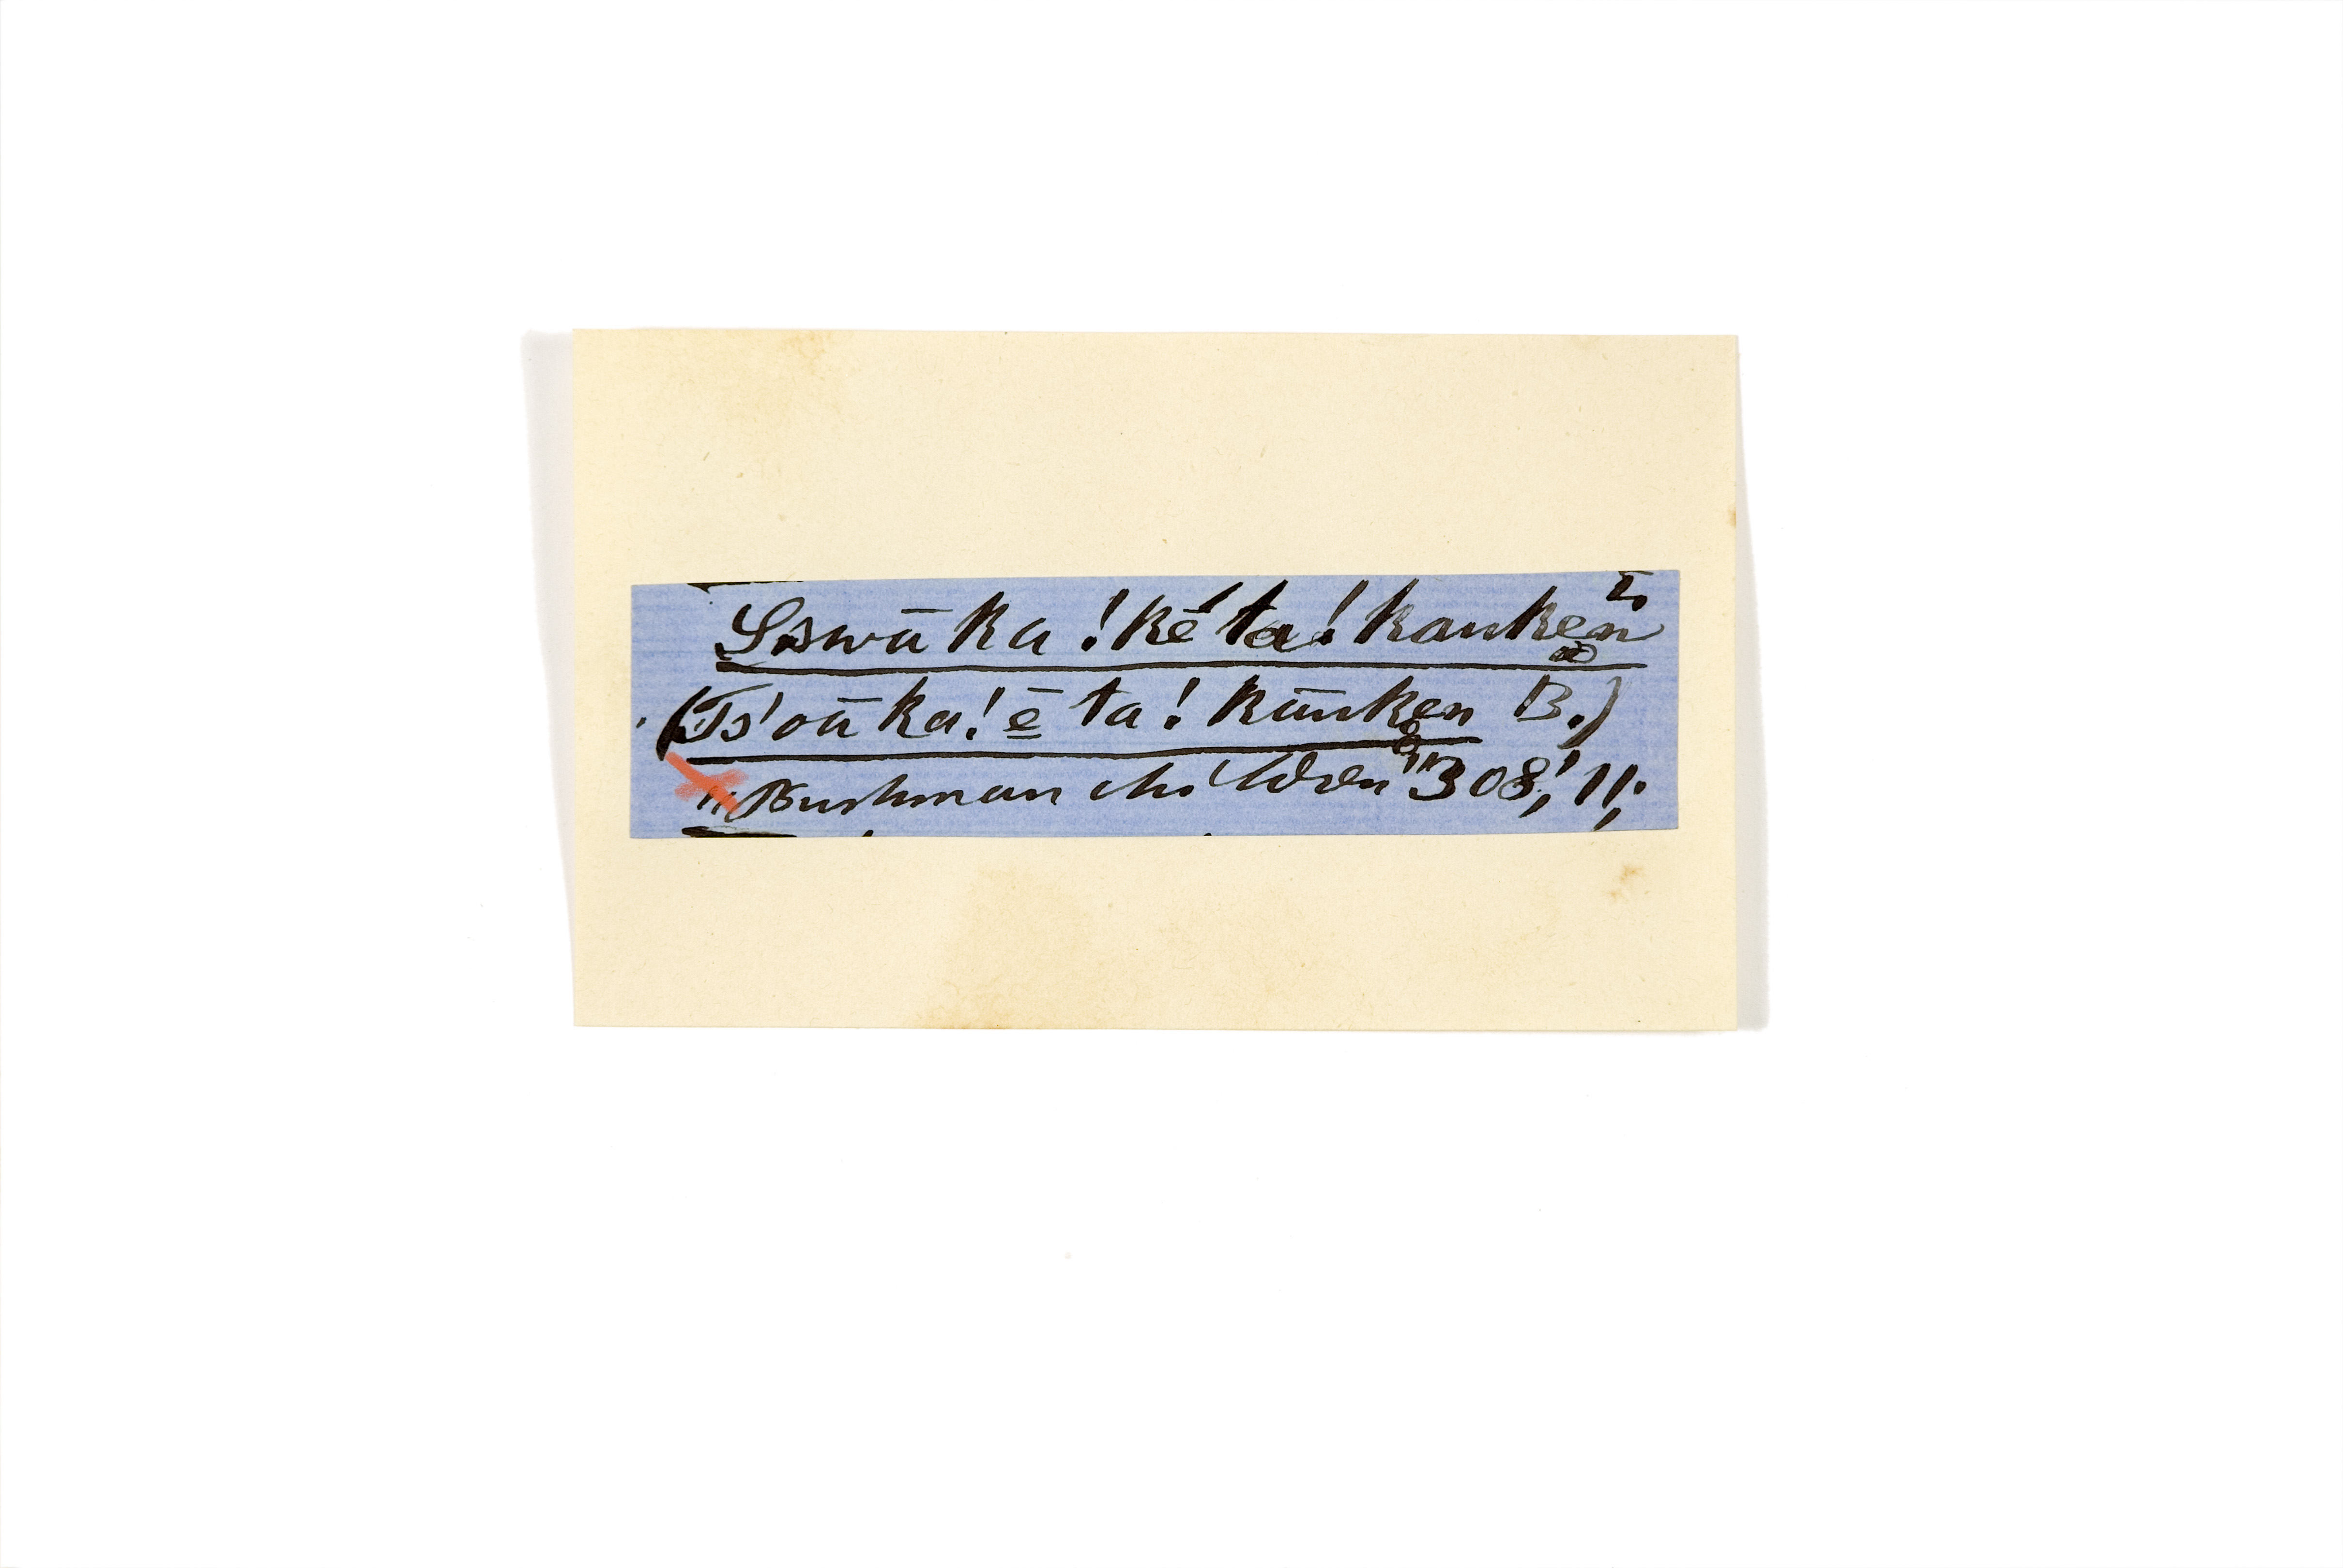 Sswā ka !kē ta !kauken L.
(Ts'oā ka !ē ta !kūuken B.)
"Bushman children" 308,' 11;